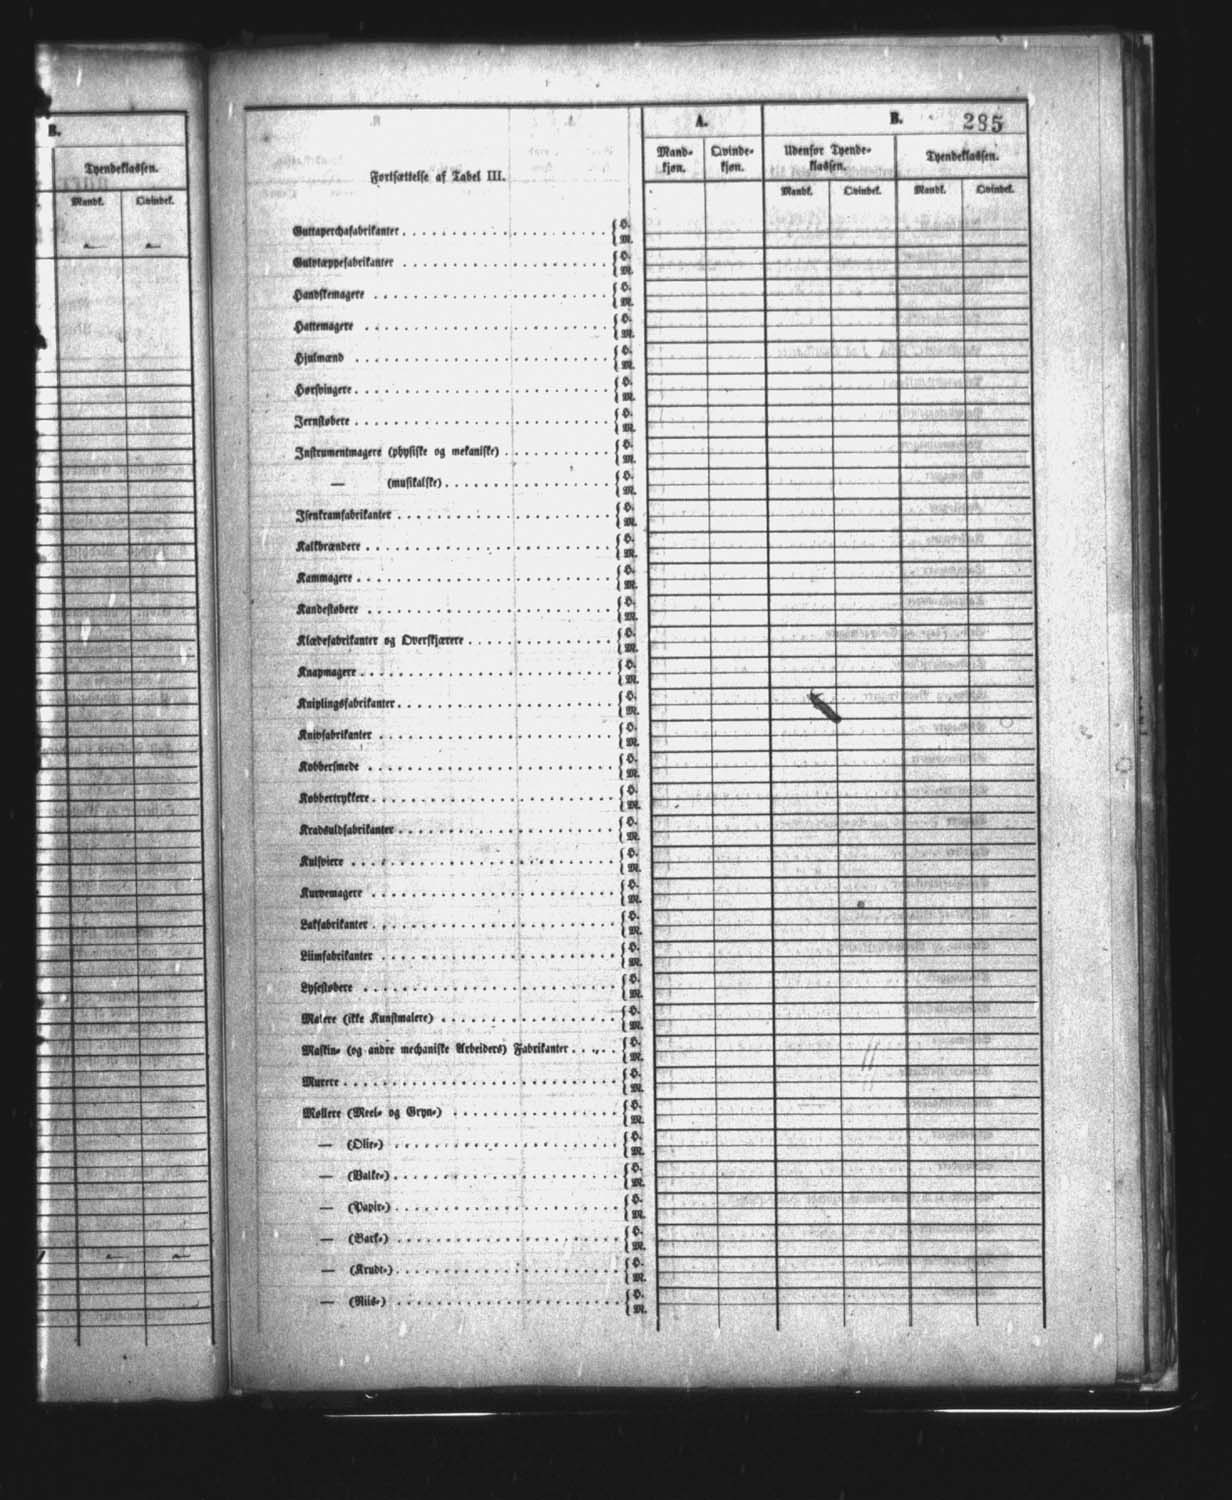 B.
Tyendeklassen.
Mandk. Qvindek.
285
Fortsættelse af Tabel III.
A. B.
Mand-kjøn. Qvinde-kjøn. Udenfor Tyende-klassen. Tyendeklassen.
Mandk. Qvindek. Mandk. Qvindek.
Guttaperchafabrikanter { H. M.
Gulvtæppefabrikanter { H. M.
Handskemagere { H. M.
Hattemagere { H. M.
Hjulmænd { H. M.
Hørsvingere { H. M.
Jernstøbere { H. M.
Instrumentmagere (physiske og mekaniske) { H. M.
— (musikalske) { H. M.
Isenkramfabrikanter { H. M.
Kalkbrændere { H. M.
Kammagere { H. M.
Kandestøbere { H. M.
Klædefabrikanter og Overskjærere { H. M.
Knapmagere { H. M.
Kniplingsfabrikanter { H. M.
Knivfabrikanter { H. M.
Kobbersmede { H. M.
Kobbertrykkere { H. M.
Kradsuldfabrikanter { H. M.
Kulsviere { H. M.
Kurvemagere { H. M.
Lakfabrikanter { H. M.
Liimfabrikanter { H. M.
Lysestøbere { H. M.
Malere (ikke Kunstmalere) { H. M.
Maskin- (og andre mechaniske Arbeiders) Fabrikanter { H. M.
Murere { H. M.
Møllere (Meel- og Gryn-) { H. M.
— (Olie-) { H. M.
— (Valke-) { H. M.
— (Papir-) { H. M.
— (Bark-) { H. M.
— (Krudt-) { H. M.
— (Riis-) { H. M.